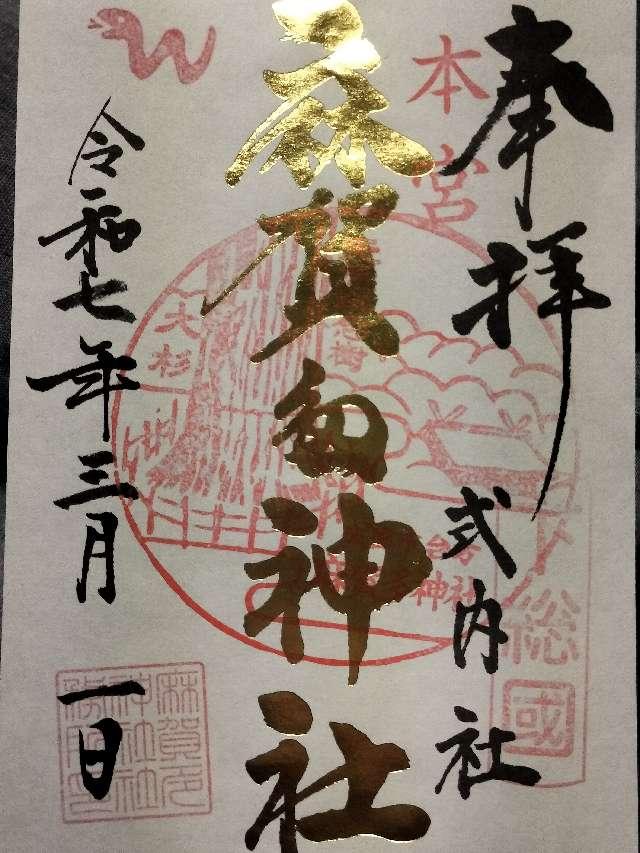 奉拝
本宮
式内社
下総國
麻賀多神社
大杉
令和七年三月一日